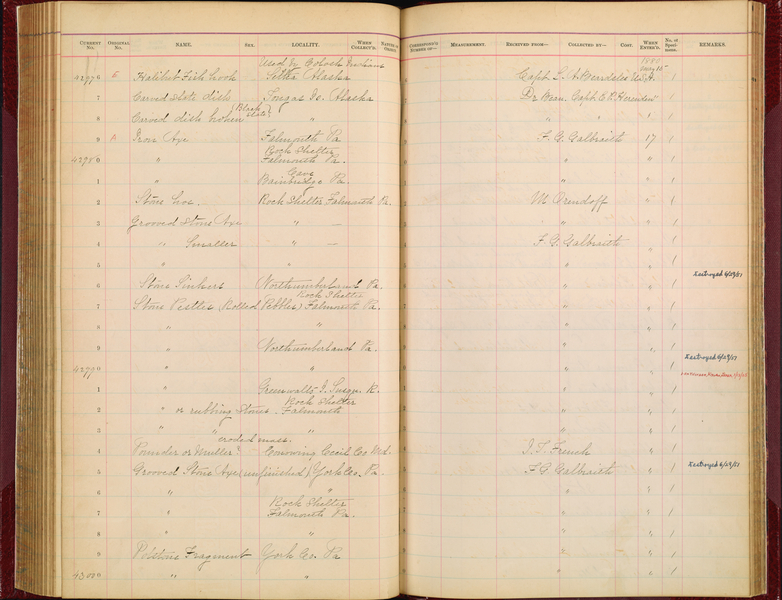 CURRENT No. ORIGINAL No. NAME. SEX. LOCALITY. WHEN COLLECT'D. MEASUREMENT. RECEIVED FROM— COLLECTED BY— COST. WHEN ENTER'D. No. of Speci- mens. REMARKS.
Used by Indians
42976 Halibut Fish hook Sitka Alaska Capt. L. A. Beardslee U.S.N. May 15 1
7 Carved slate dish Tongas Is. Alaska Dr Bean. Capt E. P. Herendeen 1
(Black slate)
8 Carved dish broken " " " 1
9 A Iron Axe Falmouth Pa F. G. Galbraith 17 1
Rock Shelter
42980 " Falmouth Pa. " " 1
Cave
1 " Bainbridge Pa. " " 1
2 Stone hoe. Rock Shelter Falmouth Pa. M. Orendoff " 1
3 Grooved Stone Axe " — " " 1
4 " Smaller " — F. G. Galbraith " 1
5 " " " " 1 Destroyed 6/29/51
6 Stone Sinkers Northumberland Pa. " " 1
Rock Shelter
7 Stone Pestles (Rolled Pebbles) Falmouth Pa. " " 1
8 " " " " 1
9 " Northumberland Pa. " " 1 Destroyed 6/29/51
42990 " " " " 1
1 " Greenwalts I. Susqu. R. " " 1
Rock Shelter
2 " or rubbing stones. Falmouth " " 1
3 " " " " " 1
eroded mass.
4 Pounder or Muller? Conowingo Cecil Co Md. I. T. French " 1
5 Grooved Stone Axe (unfinished) York Co. Pa. F. G Galbraith " 1 Destroyed 6/29/51
6 " " " " 1
Rock Shelter
7 " Falmouth Pa. " " 1
8 " " " 1
9 Potstone Fragment York Co. Pa " " 1
43000 " " " " 1